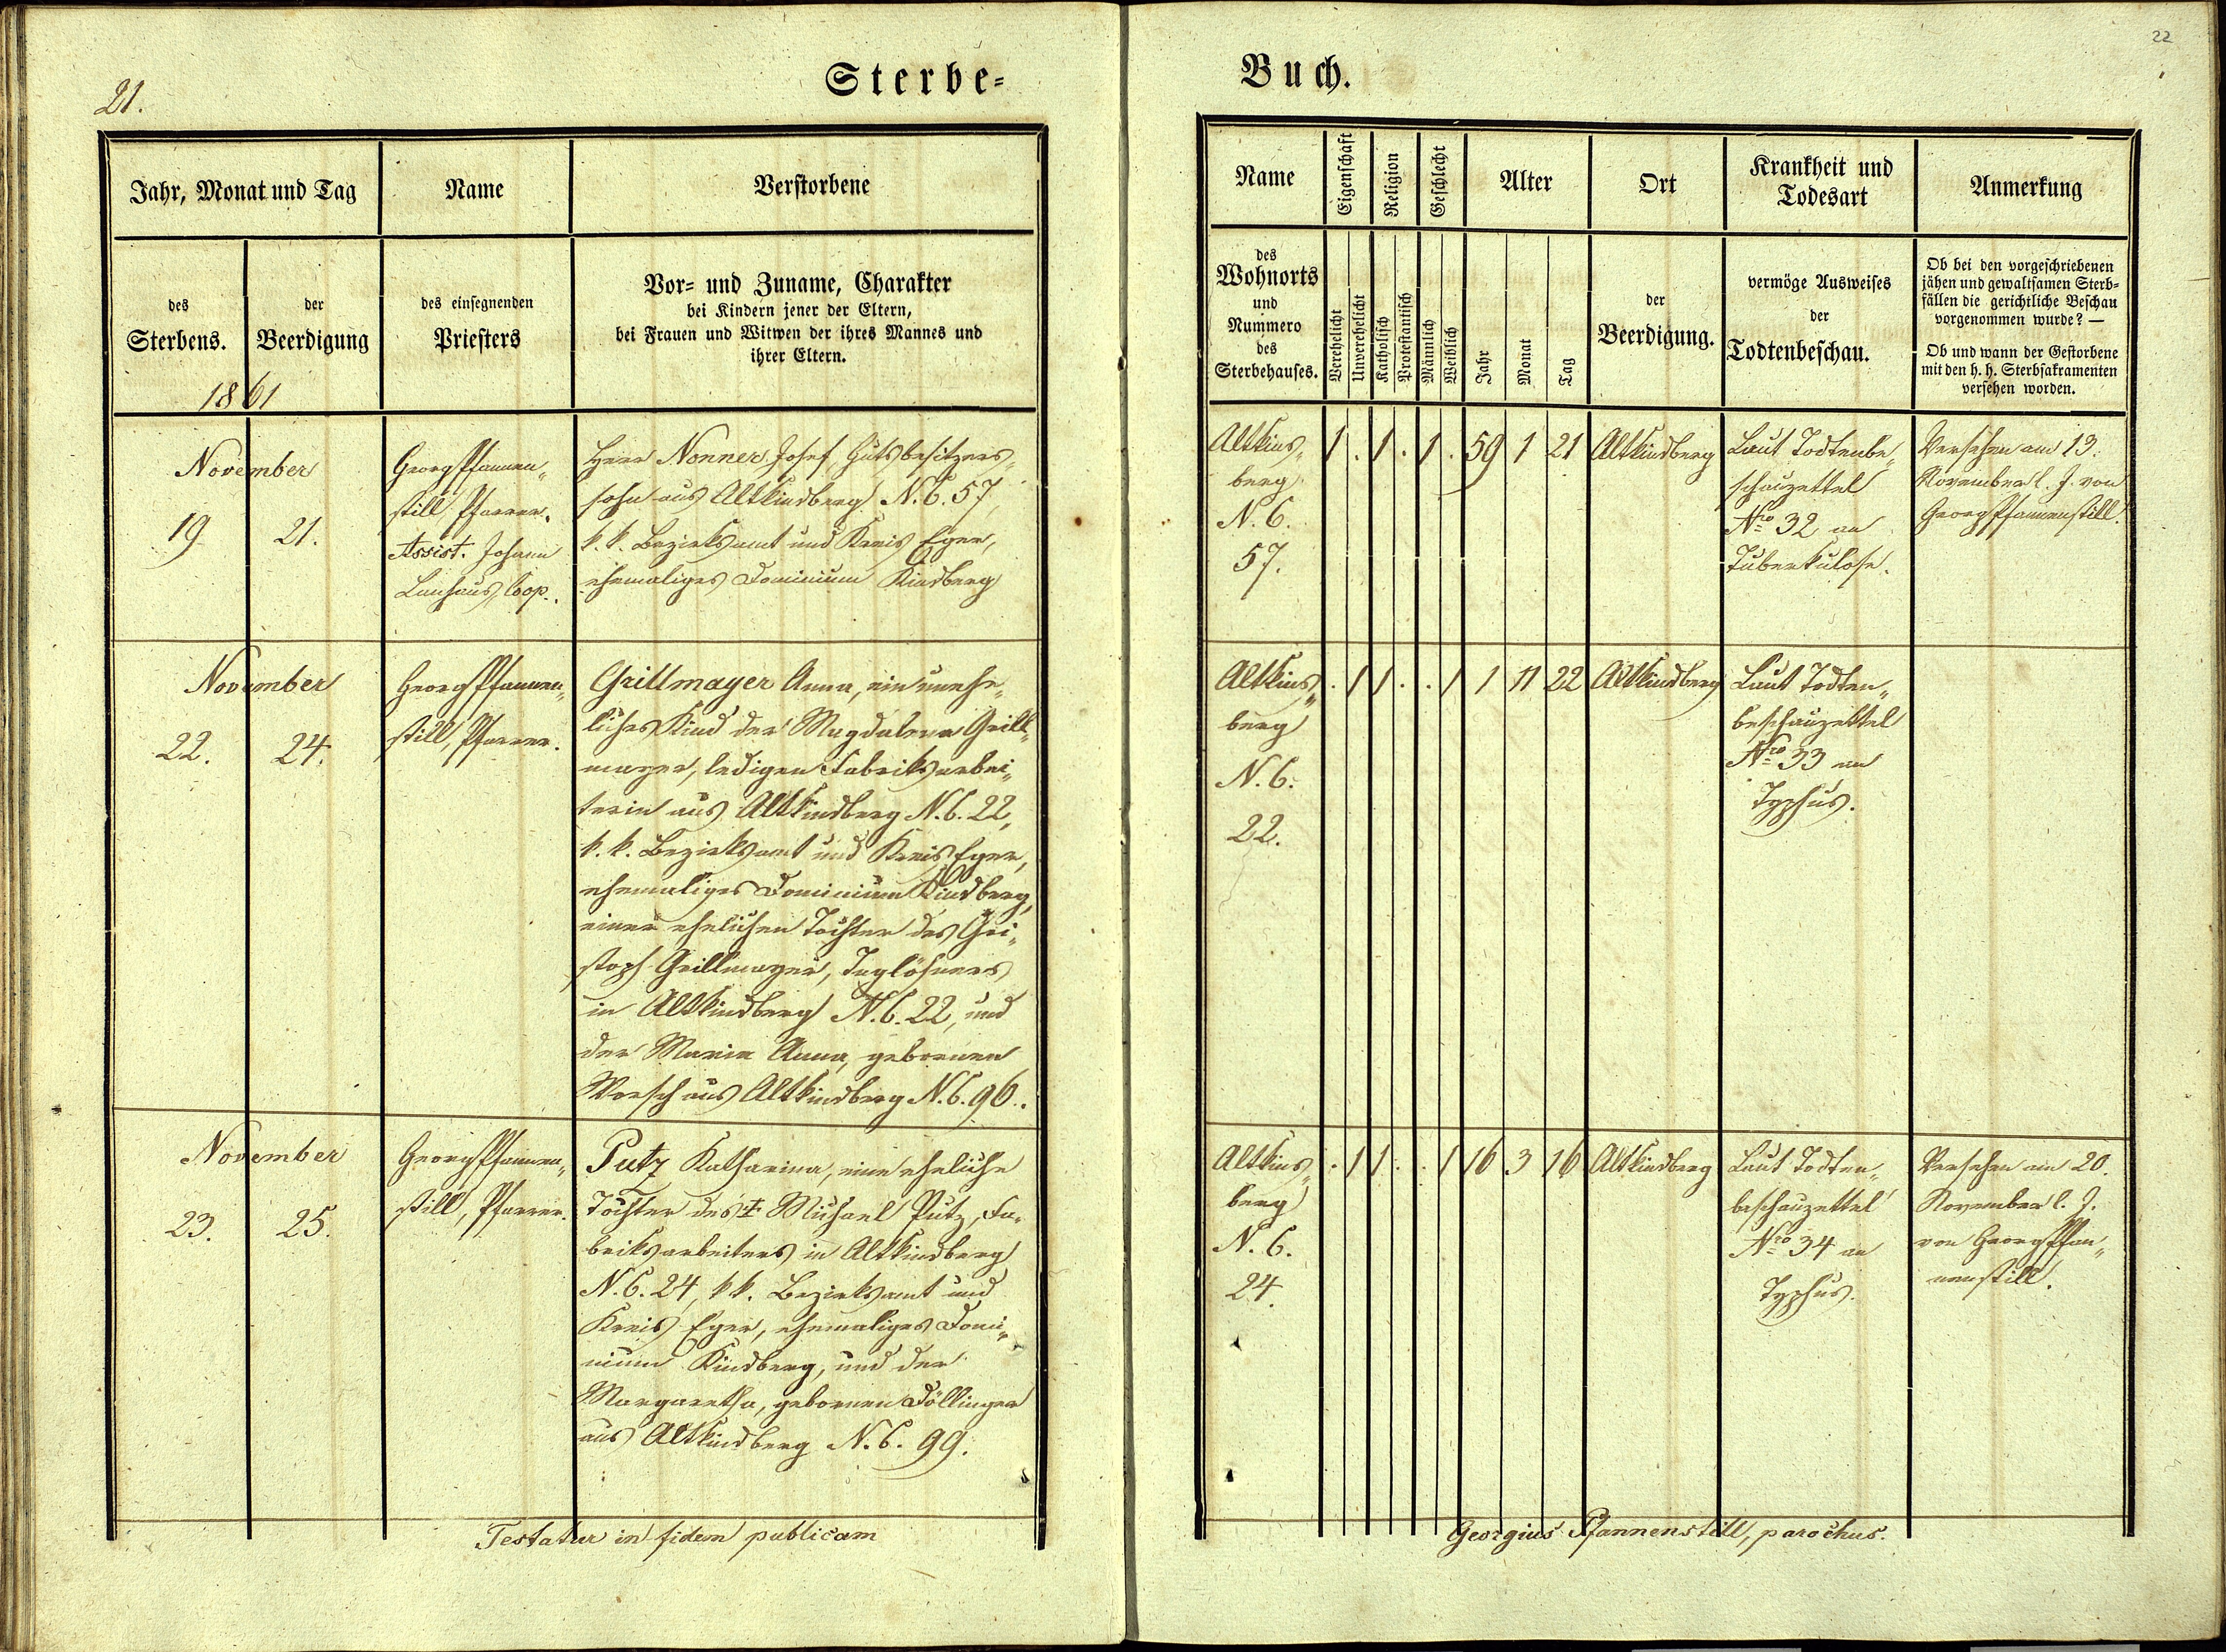 21.
Sterbe-
Jahr, Monat und Tag
Name
Verstorbene
des
Sterbens.
der
Beerdigung
des einsegnenden
Priesters
Vor- und Zuname, Charakter
bei Kindern jener der Eltern,
bei Frauen und Witwen der ihres Mannes und
ihrer Eltern.
1861
November
19
21.
Georg Pfannen„
still, Pfarrer.
Assist. Johann
Coop.
Herr Nonner Josef, Gutsbesitzers„
sohn aus Altkindberg N. C. 57,
k. k. Bezirksamt und Kreis Eger,
ehemaliges Dominium Kindberg
November
22.
24.
Georg Pfannen„
still, Pfarrer.
Grillmayer Anna, ein unehe„
liches Kind der Magdalena Grill„
mayer, ledigen Fabriksarbei„
terin aus Altkindberg N. C. 22,
k. k. Bezirksamt und Kreis Eger,
ehemaliges Dominium Kindberg,
einer ehelichen Tochter des Chri„
stoph Grillmayer, Taglöhners
in Altkindberg N. C. 22, und
der Maria Anna, gebornen
aus Altkindberg N. C. 96.
November
23.
25.
Georg Pfannen„
still, Pfarrer.
Putz Katharina, eine eheliche
Tochter des † Michael Putz, Fa„
briksarbeiters in Altkindberg
N. C. 24, k k. Bezirksamt und
Kreis Eger, ehemaliges Domi„
nium Kindberg, und der
Margaretha, gebornen Döllinger
aus Altkindberg N. C. 99.
Testatur in fidem publicam
22
Buch.
Name
Eigenschaft
Religion
Geschlecht
Alter
Ort
Krankheit und
Todesart
Anmerkung
des
Wohnorts
und
Nummero
des
Sterbehauses.
Verehelicht
Unverehelicht
Katholisch
Protestantisch
Männlich
Weiblich
Jahr
Monat
Tag
der
Beerdigung.
vermöge Ausweises
der
Todtenbeschau.
Ob bei den vorgeschriebenen
jähen und gewaltsamen Sterb-
fällen die gerichtliche Beschau
vorgenommen wurde? —
Ob und wann der Gestorbene
mit den h. h. Sterbsakramenten
versehen worden.
Altkind„
berg
N. C.
57.
1 . 1 . 1 . 59 1 21
Altkindberg
Laut Todtenbe„
schauzettel
Nro 32 an
Tuberkulose.
Versehen am 13.
November l. J. von
Georg Pfannenstill.
Altkind„
berg
N. C.
22.
. 1 1 . . 1 1 11 22
Altkindberg
Laut Todten„
beschauzettel
Nro 33 an
Typhus.
Altkind„
berg
N. C.
24.
. 1 1 . . 1 16 3 16
Altkindberg
Laut Todten„
beschauzettel
Nro 34 an
Typhus.
Versehen am 20.
November l. J.
von Georg Pfan„
nenstill.
Georgius Pfannenstill, parochus.